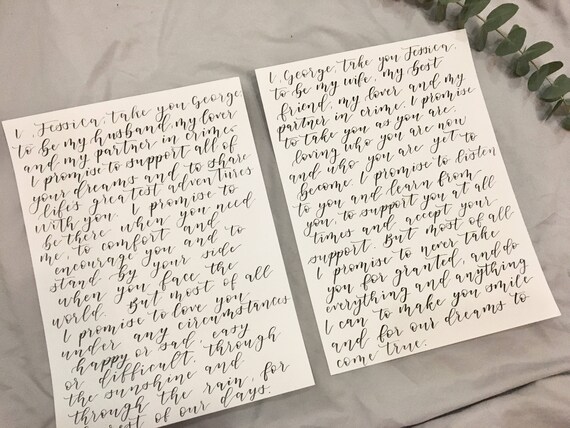 I, Jessica, take you George,
to be my husband, my lover
and my partner in crime.
I promise to support all of
your dreams and to share
life's greatest adventures
with you. I promise to
be there when you need
me, to comfort and
encourage you and to
stand by your side
when you face the
world. But most of all
I promise to love you
under any circumstances
happy or sad, easy
or difficult, through
the sunshine and
through the rain, for
rest of our days.
I, George, take you Jessica,
to be my wife, my best
friend, my lover and my
partner in crime. I promise
to take you as you are
loving who you are now
and who you are yet to
become. I promise to listen
to you and learn from
you, to support you at all
times and accept your
support. But most of all
I promise to never take
you for granted, and do
everything and anything
I can to make you smile
and for our dreams to
come true.